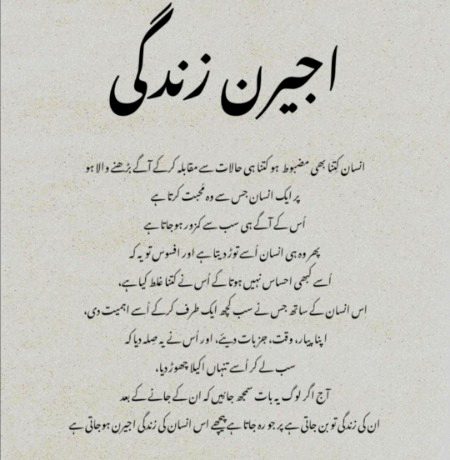 اجیرن زندگی
انسان کتنا بھی مضبوط ہو کتنا ہی حالات سے مقابلہ کرکے آگے بڑھنے والا ہو
پر ایک انسان جس سے وہ محبت کرتا ہے
اُس کے آگے ہی سب سے کمزور ہوجاتا ہے
پھر وہ ہی انسان اُسے توڑ دیتا ہے اور افسوس تو یہ کہ
اُسے کبھی احساس نہیں ہوتا کے اُس نے کتنا غلط کیا ہے،
اس انسان کے ساتھ جس نے سب کچھ ایک طرف کرکے اُسے اہمیت دی،
اپنا پیار، وقت، جزبات دیئے، اور اُس نے یہ صلہ دیا کہ
سب لے کر اُسے تنہاں اکیلا چھوڑ دیا،
آج اگر لوگ یہ بات سمجھ جائیں کہ ان کے جانے کے بعد
ان کی زندگی تو بن جاتی ہے پر جو رہ جاتا ہے پیچھے اس انسان کی زندگی اجیرن ہوجاتی ہے